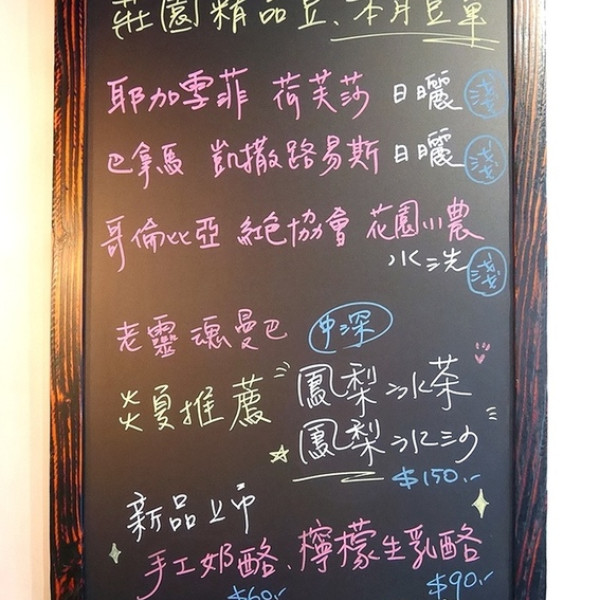 莊園精品豆、本月豆單
耶加雪菲 荷芙莎 日曬 淺
巴拿馬 凱撒路易斯 日曬 淺
哥倫比亞 紅色協會 花園小農
水洗 淺
老靈魂曼巴 中深
炎夏推薦 鳳梨冰茶
鳳梨冰沙
$150.-
新品上市
手工奶酪、檸檬生乳酪
$60.- $90.-